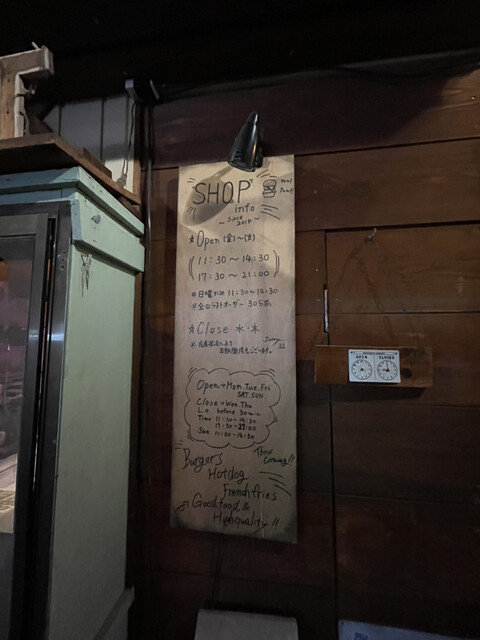 "SHOP"
info
~ Since 2018 ~
Yeah!
☆Open (金)〜(火)
11:30〜14:30
17:30〜21:00
※日曜のみ 11:30〜14:30
※全日ラストオーダー 30分前
☆Close 水・木
Sorry
Open→Mon.Tue.Fri
SAT.SUN
Close→Wen.Thu
L.o before 30min
Time 11:30-14:30
17:30-21:00
Sun 11:30-14:30
Thax Coming!!
Burgers
Hotdog
Frenchfries
Good food &
Highquality!!
OPEN CLOSED